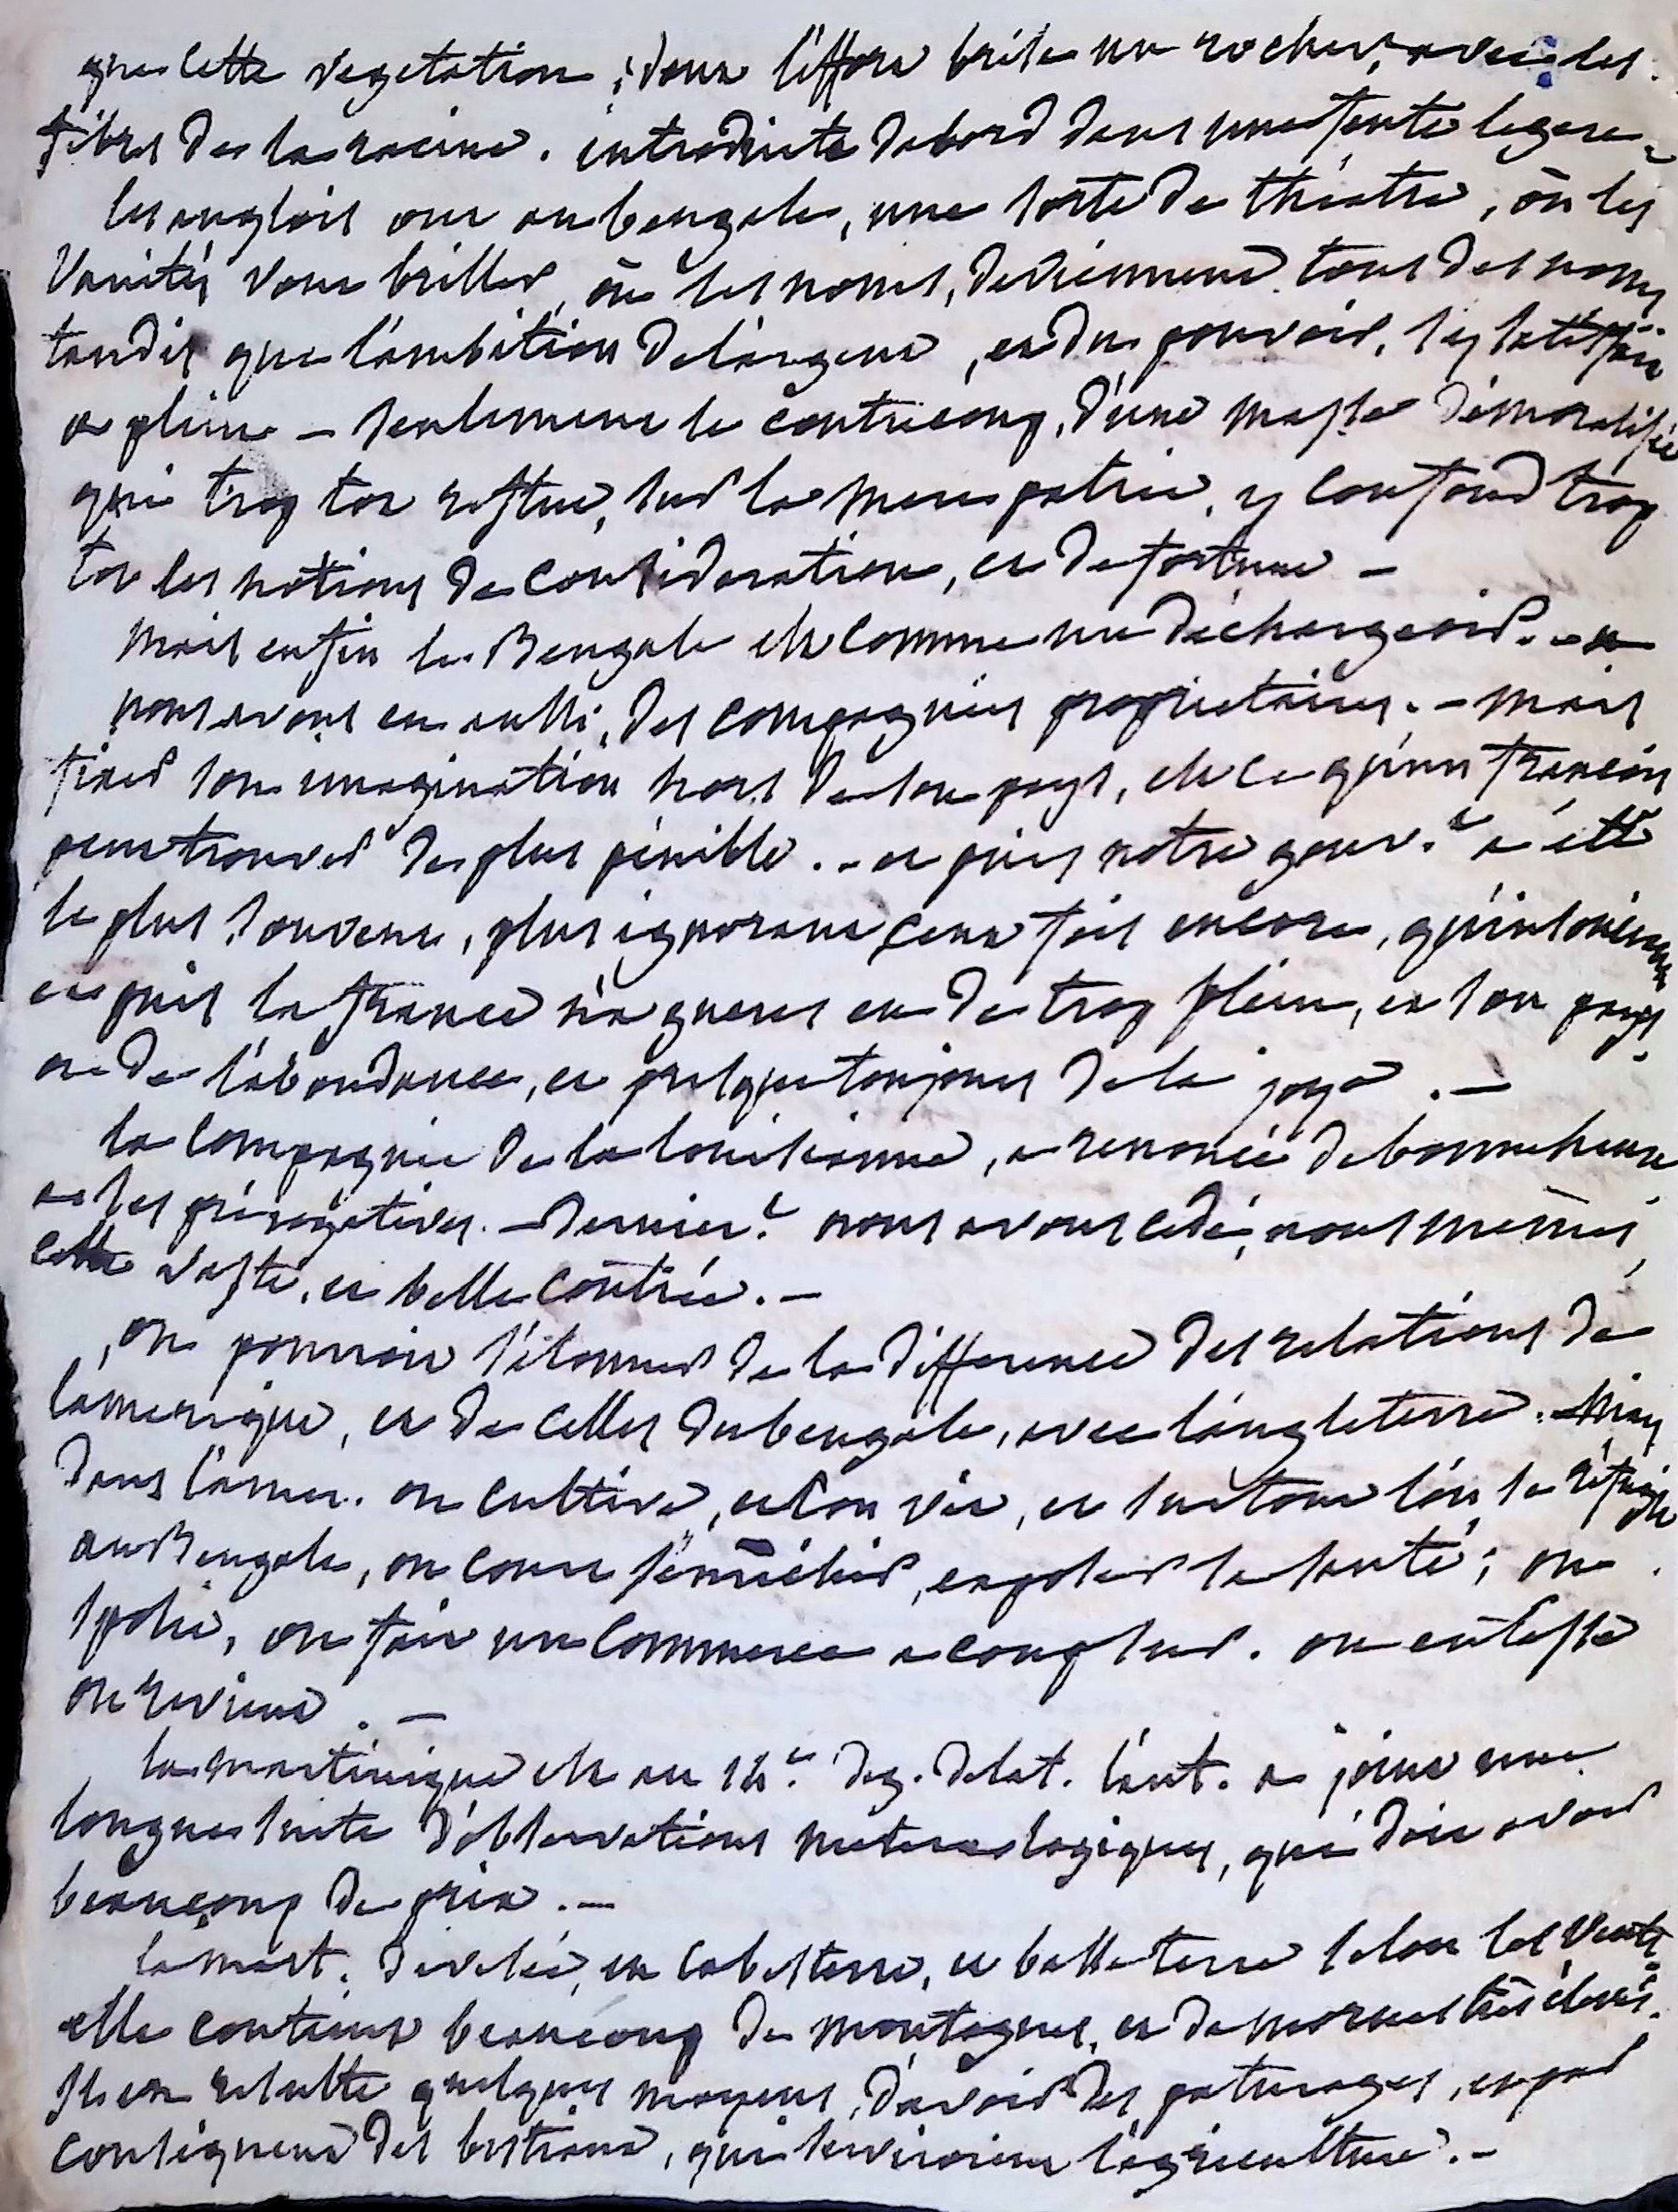 que cette vegetation, dont l'effort brise un rocher, avec les
fibres de la racine. introduite dabord dans une fente legere.
les anglois ont au bengale, une sorte de théatre, où les
vanités vont briller, où les noms, deviennent tous des noms
tandis que l'ambition de l'argent, et du pouvoir, s'y satisfait
a plein — seulement le contrecoup, d'une masse démoralisée
qui trop tot reflue, sur la mere patrie, y confond trop
tot les notions de consideration, et de fortune —
mais enfin le Bengale est comme un déchargeoir. —
nous avons eu aussi, des compagnies proprietaires. — mais
fixer son imagination hors de son pays, est ce qu'un francois
peut trouver de plus pénible. — et puis notre gouv.t a été
le plus souvent, plus ignorant cent fois encore, qu'insouciant
et puis la france n'a gueres eu de trop plein, et son pays
a de l'abondance, et presque toujours de la joye. —
la compagnie de la louisianne, a renoncé de bonne heure
a ses prérogatives. — dernier.t nous avons cédé, nous mêmes,
cette vaste, et belle contrée. —
on pourroit s'étonner de la difference des relations de
l'amerique, et de celles du bengale, avec l'angleterre. — Mais
dans l'amer. on cultive, et l'on vit, et surtout l'on se réfugie
au Bengale, on court s'enrichir, exposer sa santé; on
spolie, on fait un commerce a coup sur. on entasse
on revient. —
la martinique est au 14.e deg. de lat. l'aut. a joint une
longue suite d'observations meteorologiques, qui doit avoir
beaucoup de prix. —
la mart. divisée, en cabesterre, et basse terre selon les vents.
elle contient beaucoup de montagnes, et de mornes très élevés.
Il en resulte quelques moyens, d'avoir des paturages, et par
conséquent des bestiaux, qui serviroient l'agriculture. —